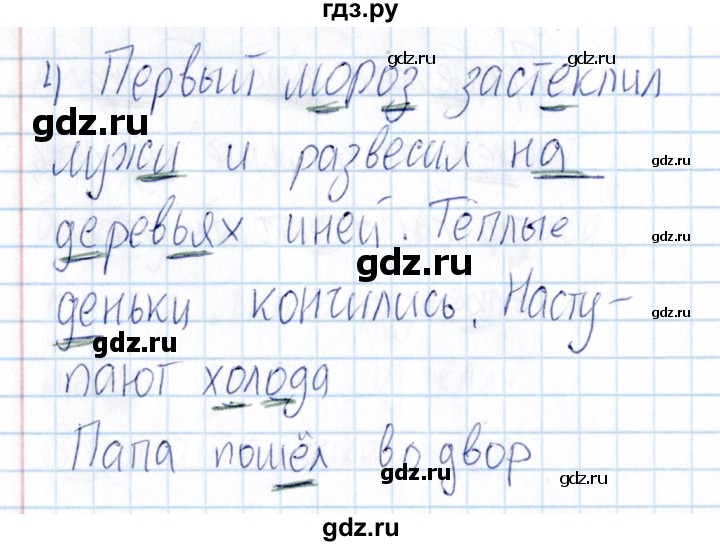 гдз.ру
4) Первый мороз застеклил
лужи и развесил на
деревьях иней. Тёплые
деньки кончились. Насту-
пают холода
Папа пошёл во двор
gdz.ru
gdz.ru
gdz.ru
gdz.ru
gdz.ru
gdz.ru
gdz.ru
gdz.ru
gdz.ru
gdz.ru
gdz.ru
gdz.ru
gdz.ru